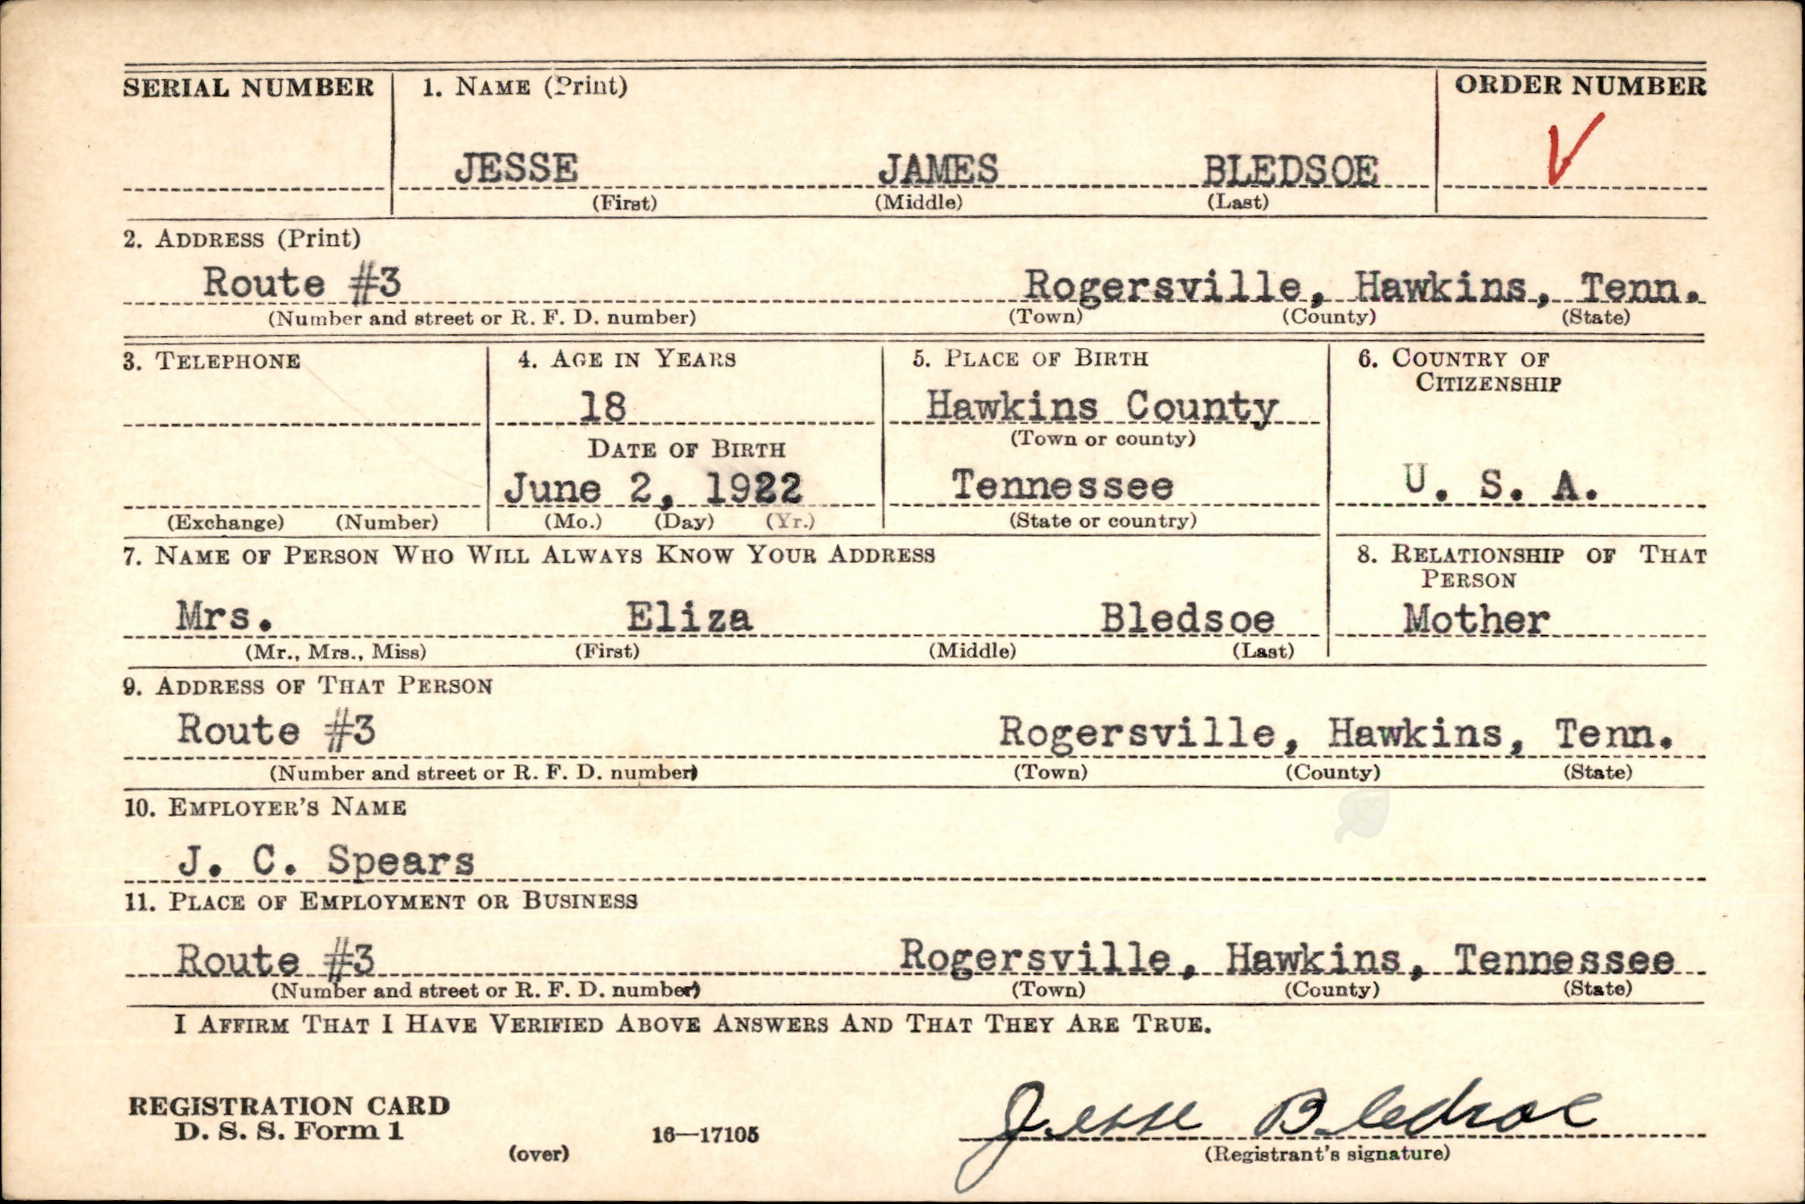 SERIAL NUMBER 1. NAME (Print) ORDER NUMBER
JESSE JAMES BLEDSOE V
(First) (Middle) (Last)
2. ADDRESS (Print)
Route #3 Rogersville, Hawkins, Tenn.
(Number and street or R. F. D. number) (Town) (County) (State)
3. TELEPHONE 4. AGE IN YEARS 5. PLACE OF BIRTH 6. COUNTRY OF
CITIZENSHIP
18 Hawkins County
(Town or county)
DATE OF BIRTH
June 2, 1922 Tennessee U. S. A.
(Exchange) (Number) (Mo.) (Day) (Yr.) (State or country)
7. NAME OF PERSON WHO WILL ALWAYS KNOW YOUR ADDRESS 8. RELATIONSHIP OF THAT
PERSON
Mrs. Eliza Bledsoe Mother
(Mr., Mrs., Miss) (First) (Middle) (Last)
9. ADDRESS OF THAT PERSON
Route #3 Rogersville, Hawkins, Tenn.
(Number and street or R. F. D. number) (Town) (County) (State)
10. EMPLOYER'S NAME
J. C. Spears
11. PLACE OF EMPLOYMENT OR BUSINESS
Route #3 Rogersville, Hawkins, Tennessee
(Number and street or R. F. D. number) (Town) (County) (State)
I AFFIRM THAT I HAVE VERIFIED ABOVE ANSWERS AND THAT THEY ARE TRUE.
REGISTRATION CARD
D. S. S. Form 1 16—17105 Jesse Bledsoe
(over) (Registrant's signature)